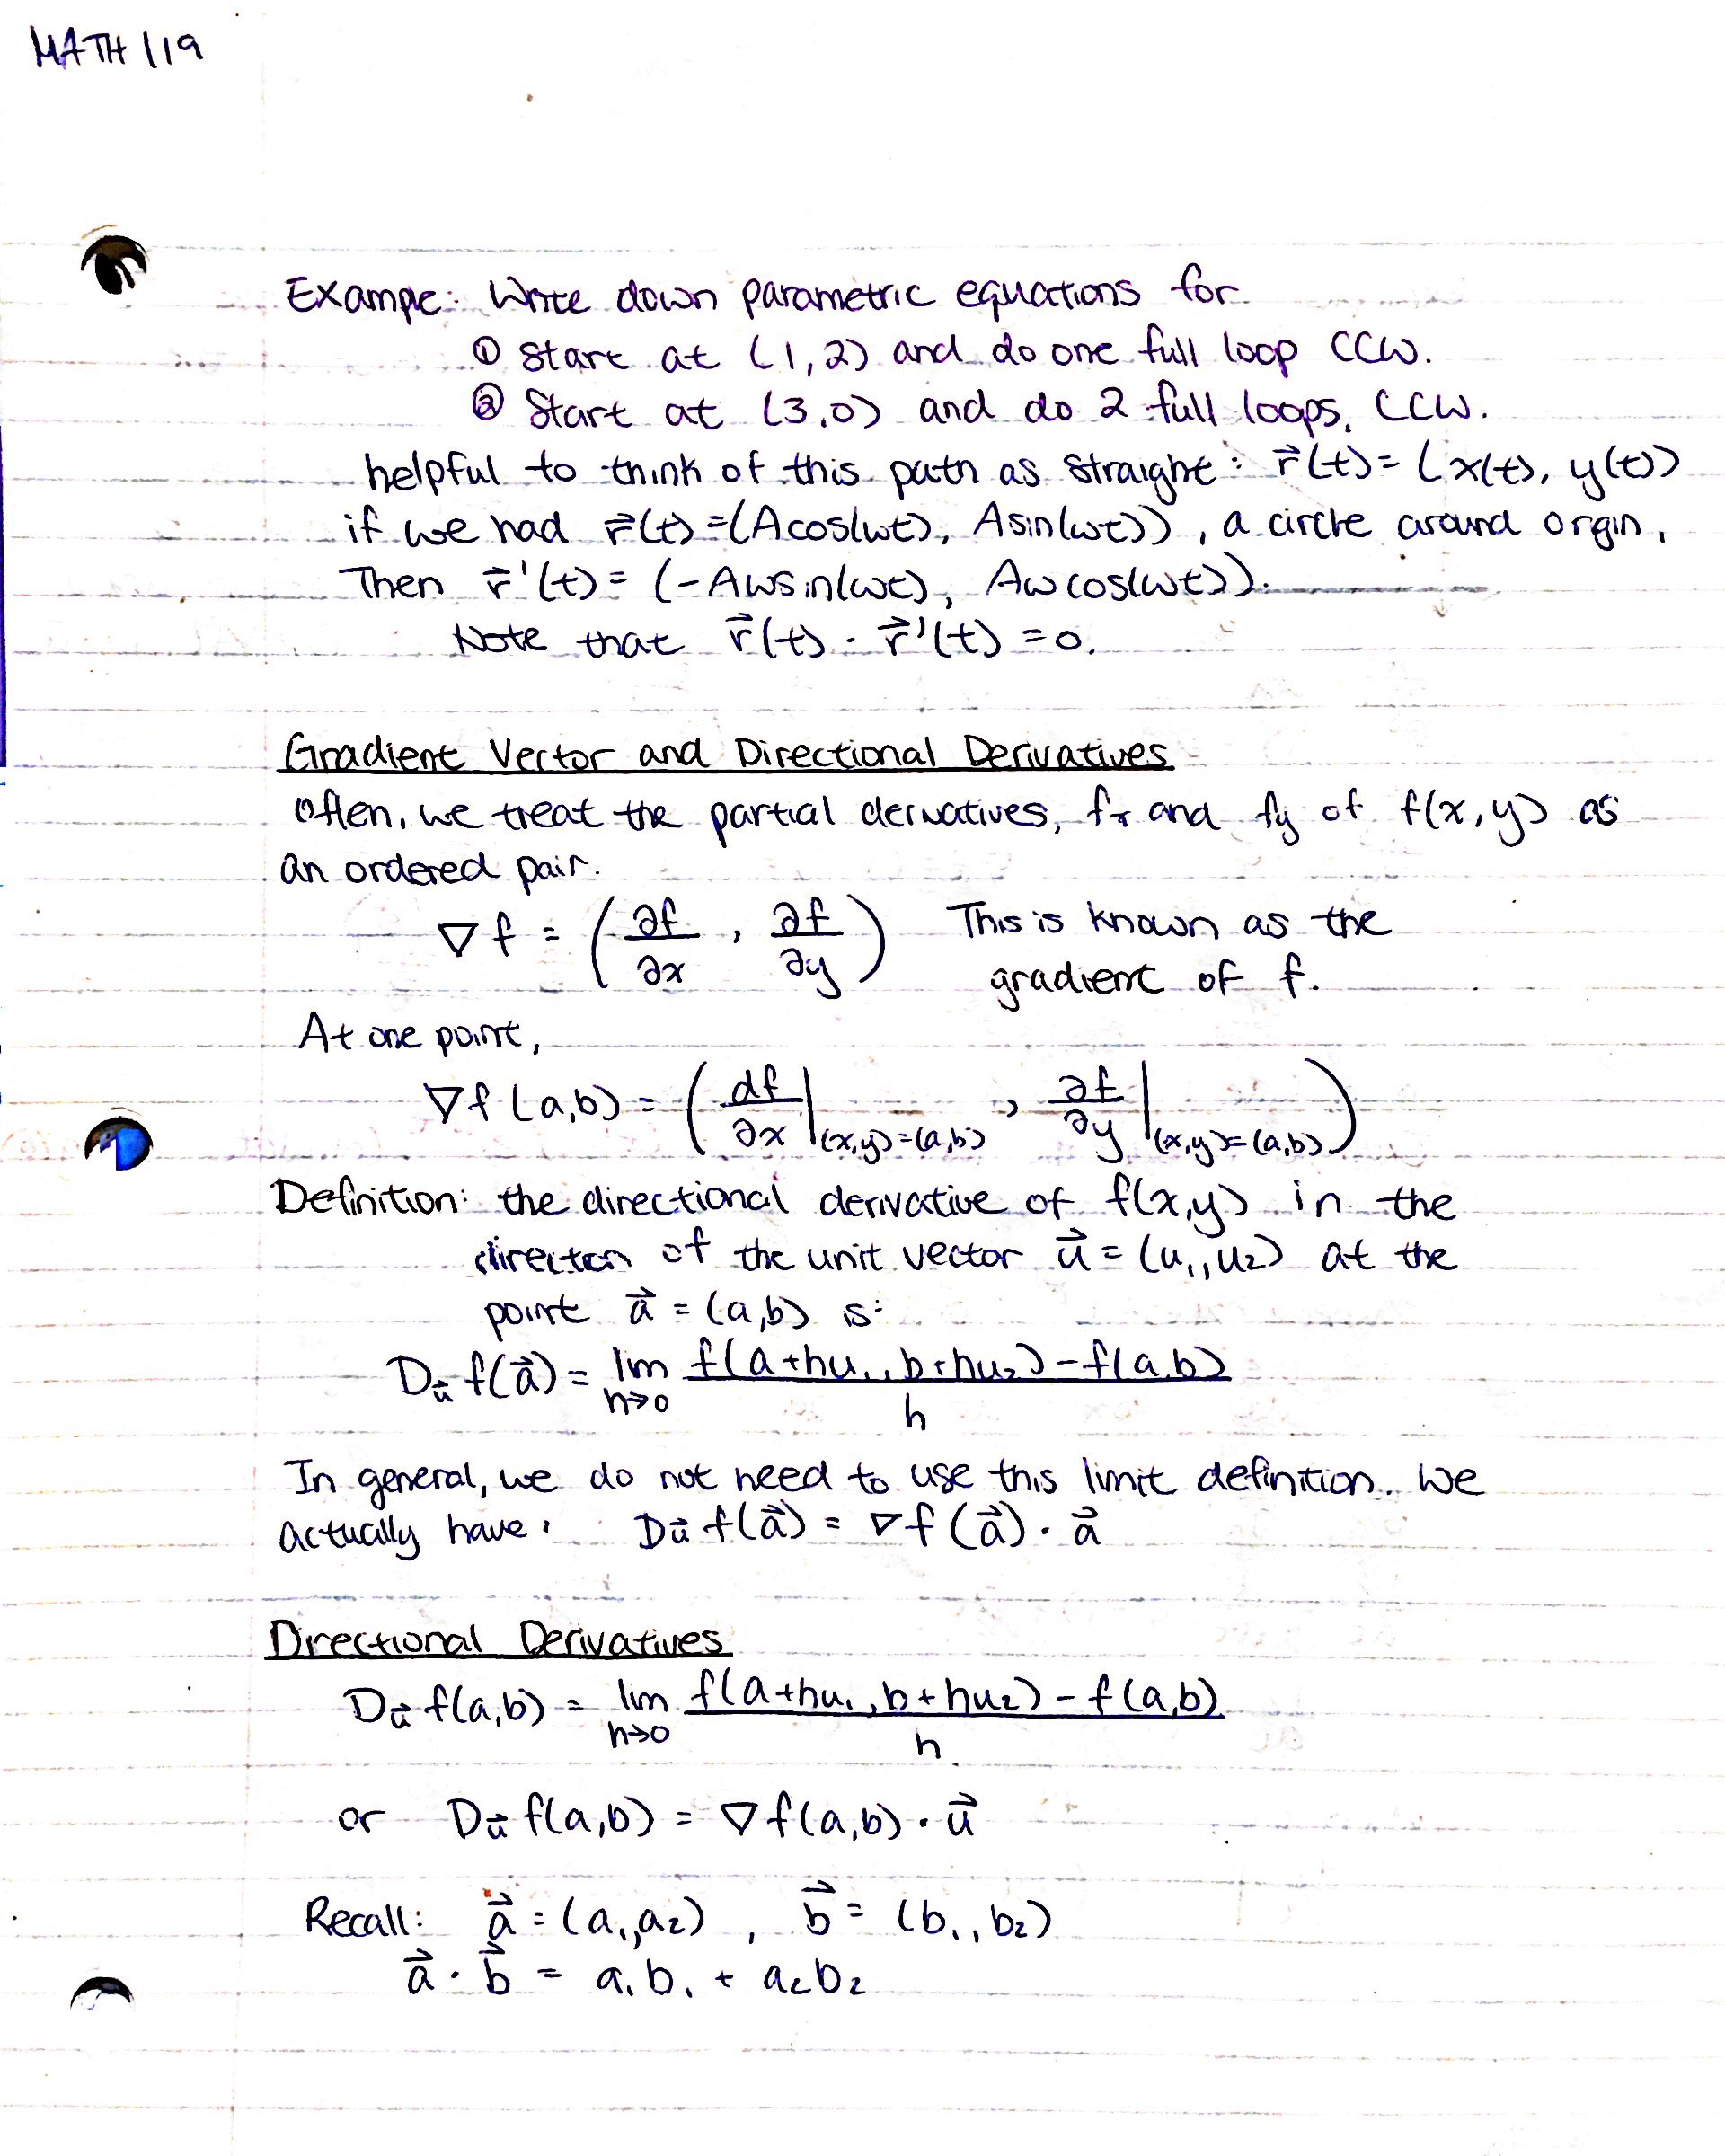 MATH 119
Exampe: Write down parametric equations for
① Start at (1,2) and do one full loop CCW.
② Start at (3,0) and do 2 full loops, CCW.
helpful to think of this path as straight: r⃗(t) = (x(t), y(t))
if we had r⃗(t) = (Acos(wt), Asin(wt)), a circle around orgin,
Then r⃗'(t) = (-Awsin(wt), Awcos(wt)).
Note that r⃗(t) · r⃗'(t) = 0.
Gradient Vector and Directional Derivatives
Often, we treat the partial derivatives, fx and fy of f(x,y) as
an ordered pair.
∇f = (∂f/∂x, ∂f/∂y) This is known as the
gradient of f.
At one point,
∇f(a,b) = (df/∂x|(x,y)=(a,b), ∂f/∂y|(x,y)=(a,b))
Definition: the directional derivative of f(x,y) in the
direction of the unit vector u⃗ = (u₁,u₂) at the
point a⃗ = (a,b) is:
Du⃗ f(a⃗) = lim h→0 f(a+hu₁, b+hu₂) - f(a,b) / h
In general, we do not need to use this limit definition. We
actually have: Du⃗ f(a⃗) = ∇f(a⃗) · a⃗
Directional Derivatives
Du⃗ f(a,b) = lim h→0 f(a+hu₁, b+hu₂) - f(a,b) / h
or Du⃗ f(a,b) = ∇f(a,b) · u⃗
Recall: a⃗ = (a₁,a₂), b⃗ = (b₁,b₂)
a⃗ · b⃗ = a₁b₁ + a₂b₂